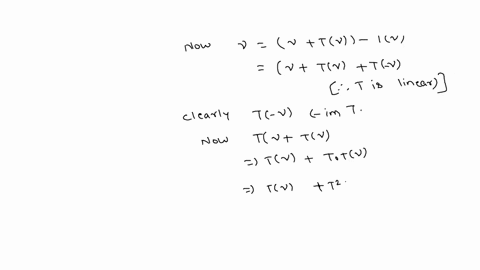 Now v = (v + T(v)) - T(v)
= (v + T(v) + T(-v)
[∵ T is linear)]
clearly T(-v) ∈ im T.
Now T(v + T(v)
=) T(v) + T∘T(v)
=) T(v) + T²·